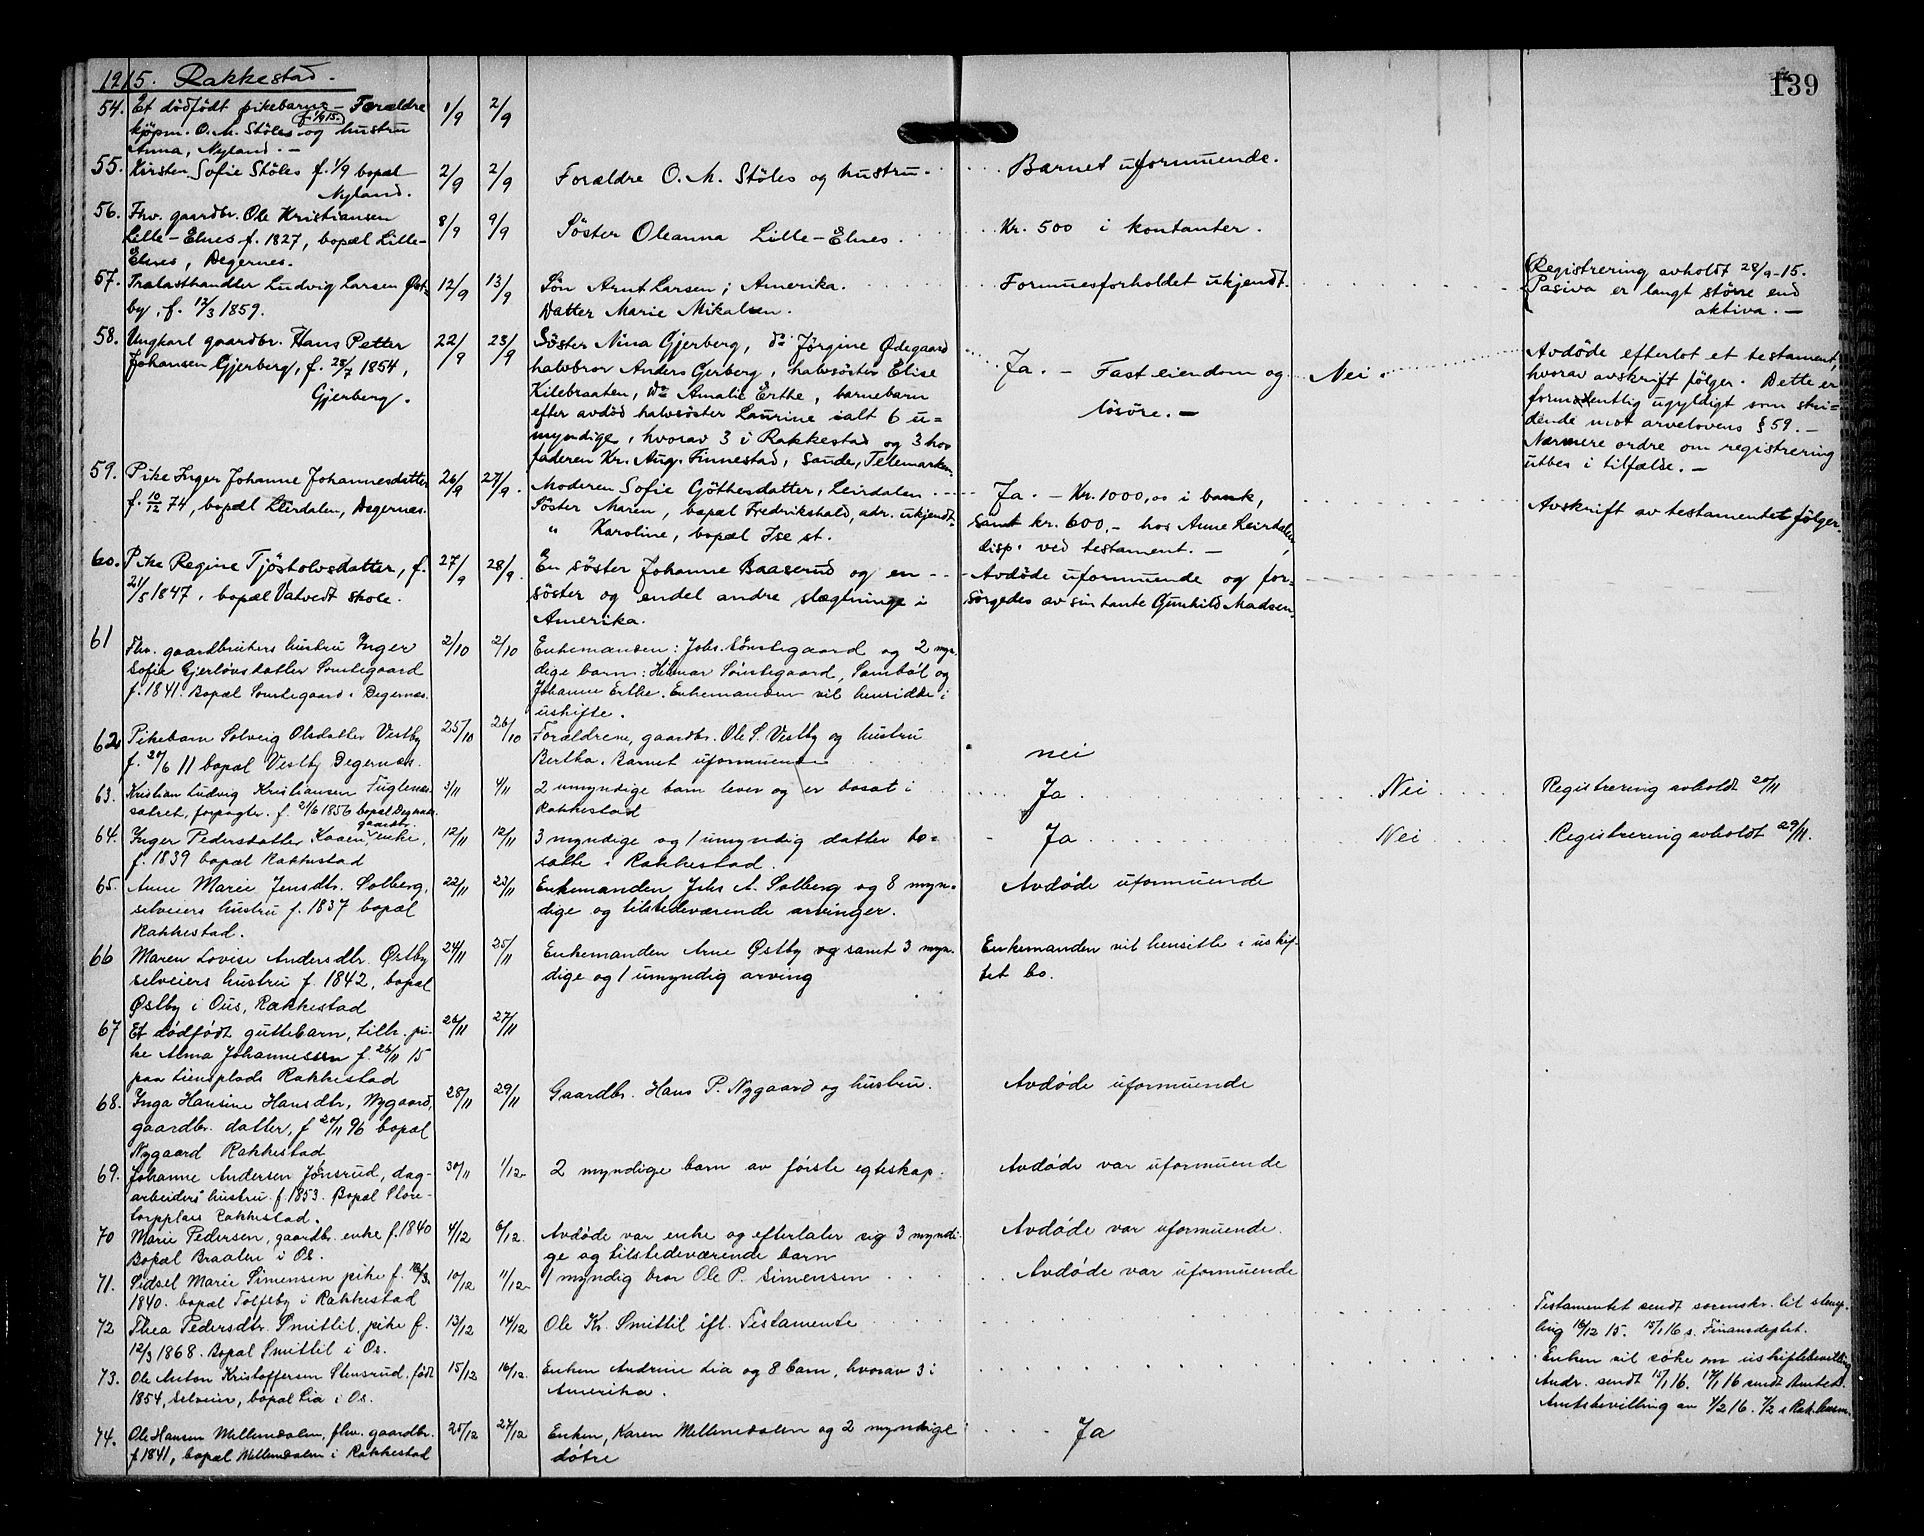 1915. Rakkestad.
139
54. Et dödfödt pikebarn – Forældre 1/9 2/9
f. 1/9 15.
kjöpm. O. M. Stöles og hustru
Anna, Nyland. –
55. Kirsten Sofie Stöles f. 1/9 bopæl 2/9 2/9 Forældre O. M. Stöles og hustru. Barnet uformuende.
Nyland.
56. Fhv. gaardbr. Ole Kristiansen 8/9 9/9 Söster Oleanna Lille-Elnes. Kr. 500 i kontanter.
Lille-Elnes f. 1827, bopæl Lille-
Elnes, Degernes.
57. Tralasthandler Ludvig Larsen Øst- 12/9 13/9 Sön Arnt Larsen, i Amerika. Formuesforholdet ukjendt. Registrering avholdt 28/9-15.
by, f. 12/3 1859. Datter Marie Mikalsen. Pasiva er langt större end
aktiva. –
58. Ungkarl gaardbr. Hans Petter 22/9 23/9 Söster Nina Gjerberg, do Jörgine Ödegaard Ja. – Fast eiendom og Nei. Avdöde efterlot et testament,
Johansen Gjerberg, f. 28/7 1854, halvbror Anders Gjerberg, halvsöster Elise lösöre. – hvorav avskrift fölger. Dette er
Gjerberg. Kilebraaten, do Amalie Erthe, barnebarn formodentlig ugyldigt som stri-
efter avdöd halvsöster Laurine ialt 6 u= dende mot arvelovens § 59. –
myndige, hvorav 3 i Rakkestad og 3 hos Nærmere ordre om registrering
faderen Kr. Aug. Finnestad, Sande, Telemarken. utbes i tilfælde. –
59. Pike Inger Johanne Johannesdatter 26/9 27/9. Moderen Sofie Göthesdatter, Leirdalen Ja. – Kr. 1000,00 i bank, Avskrift av testamentet fölger.
f. 10/12 74, bopæl Leirdalen, Degernes. Söster Maren, bopæl Fredrikshald, adr. ukjendt. samt kr. 600.– hos Anne Leirdalen,
" Karoline, bopæl Ise st. disp. ved testament. –
60. Pike Regine Tjöstolvsdatter, f. 27/9 28/9. En söster Johanne Baaserud og en Avdöde uformuende og for-
21/5 1847, bopæl Vatvedt skole. söster og endel andre slægtninge i sörgedes av sin tante Gunhild Madsen.
Amerika.
61 Fhv. gaardbrukers hustru Inger 2/10 2/10 Enkemanden: Johs. Sönstegaard og 2 myn-
Sofie Gjerlövsdatter Sönstegaard dige barn: Hilmar Sönstegaard, Sambøl og
f. 1841. Bopæl Sönstegaard i Degernes. Johanne Erthe. Enkemanden vil hensidde i
uskifte.
62. Pikebarn Solveig Olsdatter Vestby 25/10 26/10 Forældrene, gaardbr. Ole S. Vestby og hustru nei
f. 20/6 11 bopæl Vestby Degernes. Bertha. Barnet uformuende
63. Kristian Ludvig Kristiansen Fuglenes- 3/11 4/11 2 umyndige barn lever og er bosat i Ja Nei Registrering avholdt 20/11
satret, forpagter. f. 21/6 1856 bopæl Degernes. Rakkestad
gaardbr.
64. Inger Pedersdatter Kaaen, enke, 12/11 12/11 3 myndige og 1 umyndig datter bo= Ja Nei Registrering avholdt 29/11.
f. 1839 bopæl Rakkestad satte i Rakkestad.
65. Anne Marie Jensdtr. Solberg, 22/11 23/11 Enkemanden Johs A. Solberg og 8 myn- Avdöde uformuende
selveiers hustru f. 1837 bopæl dige og tilstedeværende arvinger.
Rakkestad.
66 Maren Lovise Andersdtr. Østby 24/11 25/11 Enkemanden Arne Østby og samt 3 myn- Enkemanden vil hensitte i uskif-
selveiers hustru f. 1842, bopæl dige og 1 umyndig arving tet bo.
Østby i Ous, Rakkestad
67 Et dödfödt guttebarn, tilh. pi- 26/11 27/11
ke Alma Johannessen f. 26/11 15
paa Rakkestad
68. Inga Hansine Hansdtr, Nygaard, 28/11 29/11 Gaardbr. Hans P. Nygaard og hustru. Avdöde uformuende
gaardbr. datter, f 20/11 96 bopæl
Nygaard Rakkestad
69. Johanne Andersen Jönsrud, dag- 30/11 1/12 2 myndige barn av förste egteskap. Avdöde var uformuende
arbeiders hustru f. 1853. Bopæl Store-
torpplass Rakkestad.
70 Marie Pedersen, gaardbr. enke f. 1840 4/12 6/12. Avdöde var enke og efterlater sig 3 myndi- Avdöde var uformuende.
Bopæl Braaten i Os. ge og tilstedeværende barn
71. Sidsel Marie Simensen pike f. 18/3 10/12 11/12 1 myndig bror Ole P. Simensen Avdöde var uformuende
1840. bopæl Tolfsby i Rakkestad
72 Thea Pedersdtr. Smittil, pike f. 13/12 14/12 Ole Kr. Smittil ifl. Testamente Testamentet sendt sorenskr. til stemp-
12/3 1868. Bopæl Smittil i Os. ling 16/12 15. 15/1 16 s. Finansdeptet.
73. Ole Anton Kristoffersen Stensrud, født 15/12 16/12. Enken Andrine Lia og 8 barn, hvorav 3 i Enken vil söke om uskiftebevilling
1854, selveier, bopæl Lia i Os. Amerika. Andr. sendt 15/1 16. 17/1 16 sendt Amtet.
Amtsbevilling av 1/2 16.
74. Ole Hansen Mellemdalen, fhv. gaardbr. 25/12 27/12 Enken, Karen Mellemdalen og 2 myndige Ja
f. 1841, bopæl Mellemdalen i Rakkestad dötre